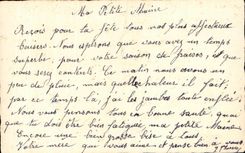 Ma Petite Mémère
Reçois pour ta fête tous nos plus affectueux
baisers. Nous espérons que vous avez un temps
superbe, pour votre saison de fraises, et que
vous serez contents. Ce matin nous avons un
peu de pluie, mais quelle chaleur il fait,
par ce temps là, j'ai les jambes toute enflée
Nous vous pensons tous en bonne santé, quoi
que tu dois être bien fatiguée ma petite
Encore une bien grosse bise à tous.
Votre mère qui vous aime et pense bien à vous